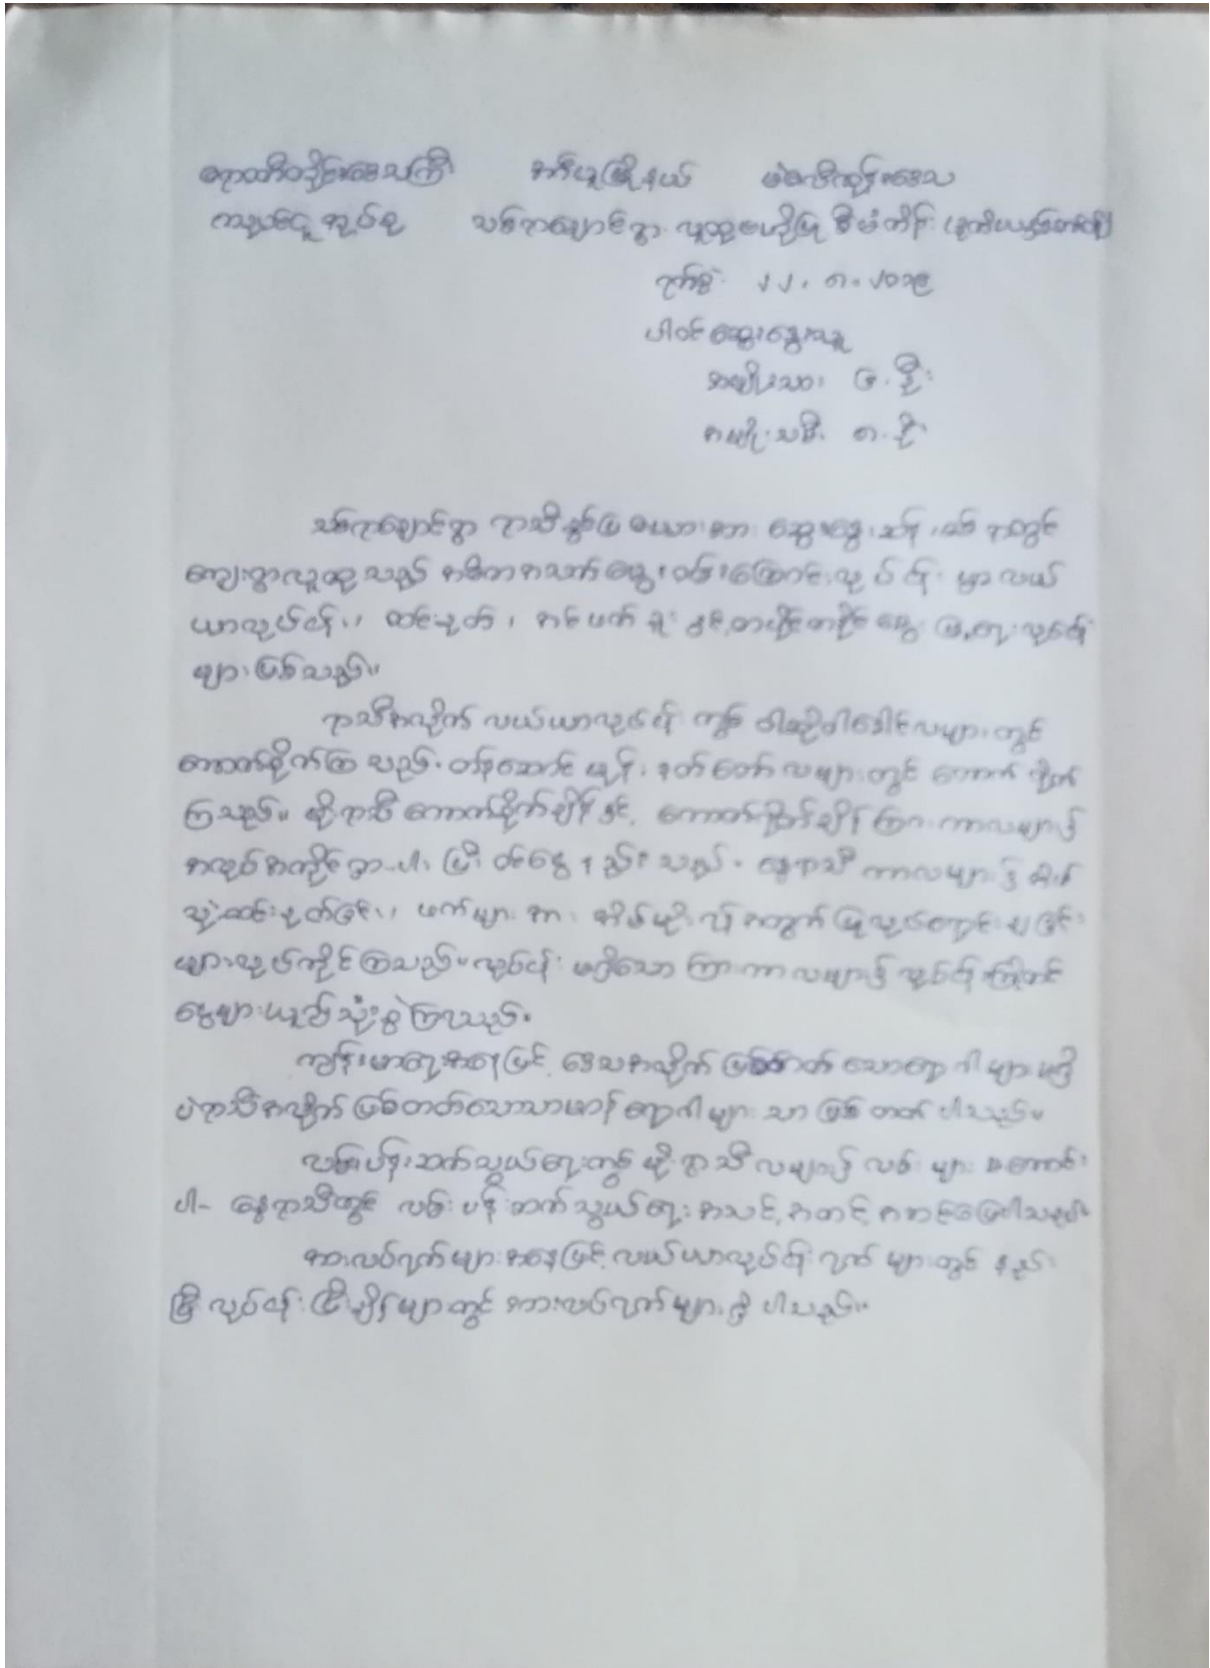 ဧရာဝတီတိုင်းဒေသကြီး ဖျာပုံမြို့နယ် ကျွန်းဒေသ
အုပ်စု သစ်ရာချောင်ရွာ လူထုဗဟိုပြု စီမံကိန်း
ရက်စွဲ ၂၂.၈.၂၀၁၉
ပါဝင်ဆွေးနွေးသူ
အမျိုးသား ဦး
အမျိုးသမီး ၈ ဦး
ရွာ ရာသီခွင်ပြ ဇယားအား ဆွေးနွေး ရာတွင်
ကျေးရွာလူထုသည် အဓိကအသက်မွေးဝမ်းကြောင်းလုပ်ငန်းမှာ လယ်
ယာလုပ်ငန်း၊ ထင်းခုတ်၊ နှင့် တပိုင်တနိုင် မွေးမြူရေးလုပ်ငန်း
များဖြစ်သည်။
ရာသီအလိုက် လယ်ယာလုပ်ငန်းတွင် ဝါဆိုဝါခေါင်လများတွင်
ကောက်စိုက်ကြသည်။ တန်ဆောင်မုန်း နတ်တော်လများတွင် ကောက်ရိတ်
ကြသည်။ မိုးရာသီ ကောက်စိုက်ချိန်နှင့် ကောက်ရိတ်ချိန် ကြားကာလများ၌
အလုပ်အကိုင်ရှားပါးပြီး ဝင်ငွေနည်းသည်။ နွေရာသီ ကာလများ၌
ထင်းခုတ်ခြင်း၊ ဖက်များအား အိမ်မိုးရန်အတွက် ပြုလုပ်ရောင်းချခြင်း
များလုပ်ကိုင်ကြသည်။ လုပ်ငန်းမရှိသော ကြားကာလများ၌ လုပ်ငန်းကြိုတင်
ငွေများယူ၍ သုံးစွဲကြရသည်။
ကျန်းမာရေးအနေဖြင့် ဒေသအလိုက် ဖြစ်တတ်သောရောဂါများမရှိ
ပဲ ရာသီအလိုက် ဖြစ်တတ်သောသာမာန်ရောဂါများသာ ဖြစ်တတ်ပါသည်။
လမ်းပန်းဆက်သွယ်ရေးတွင် မိုးရာသီလများ၌ လမ်းများ မကောင်း
ပါ- နွေရာသီတွင် လမ်းပန်းဆက်သွယ်ရေး အသင့်အတင့်
အားလပ်ရက်များအနေဖြင့် လယ်ယာလုပ်ငန်း ရက်များတွင် နည်း
ပြီး လုပ်ငန်းပြီးချိန်များတွင် အားလပ်ရက်များရှိပါသည်။